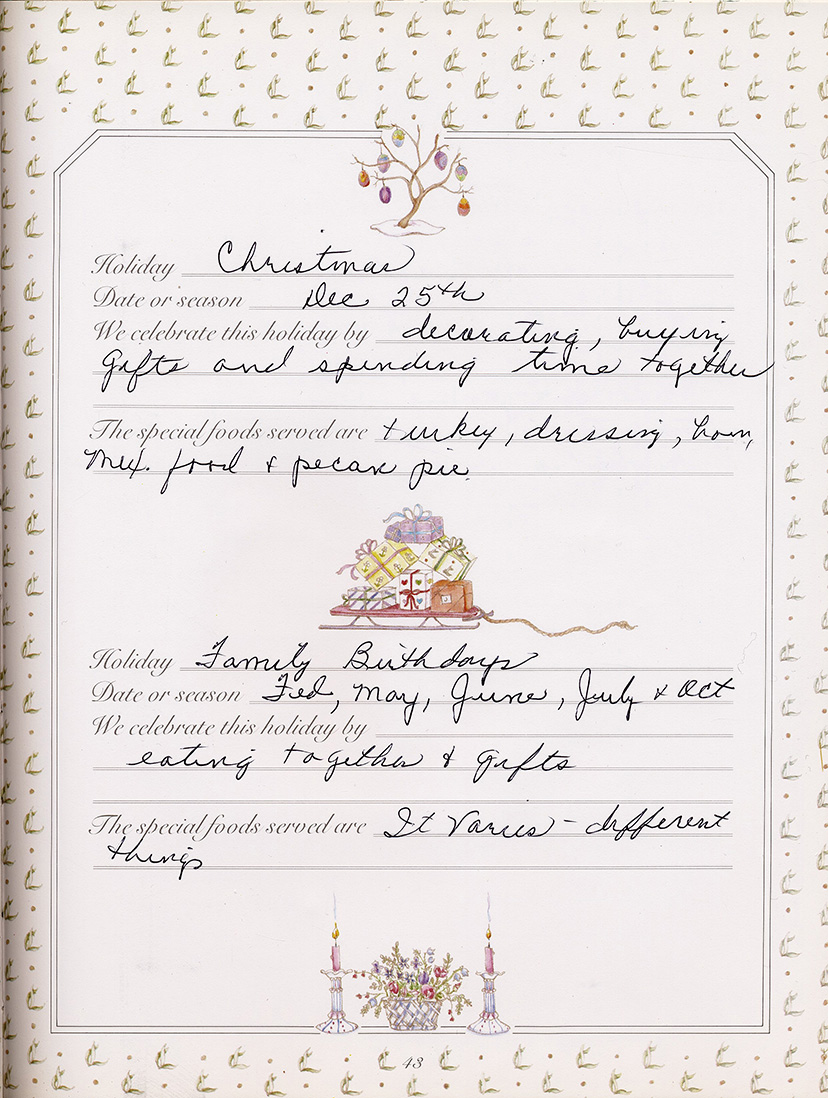 Holiday Christmas
Date or season Dec 25th
We celebrate this holiday by decorating, buying
gifts and spending time together
The special foods served are turkey, dressing, ham,
Mex. food & pecan pie.
Holiday Family Birthdays
Date or season Feb, May, June, July & Oct
We celebrate this holiday by
eating together & gifts
The special foods served are It varies - different
things
43